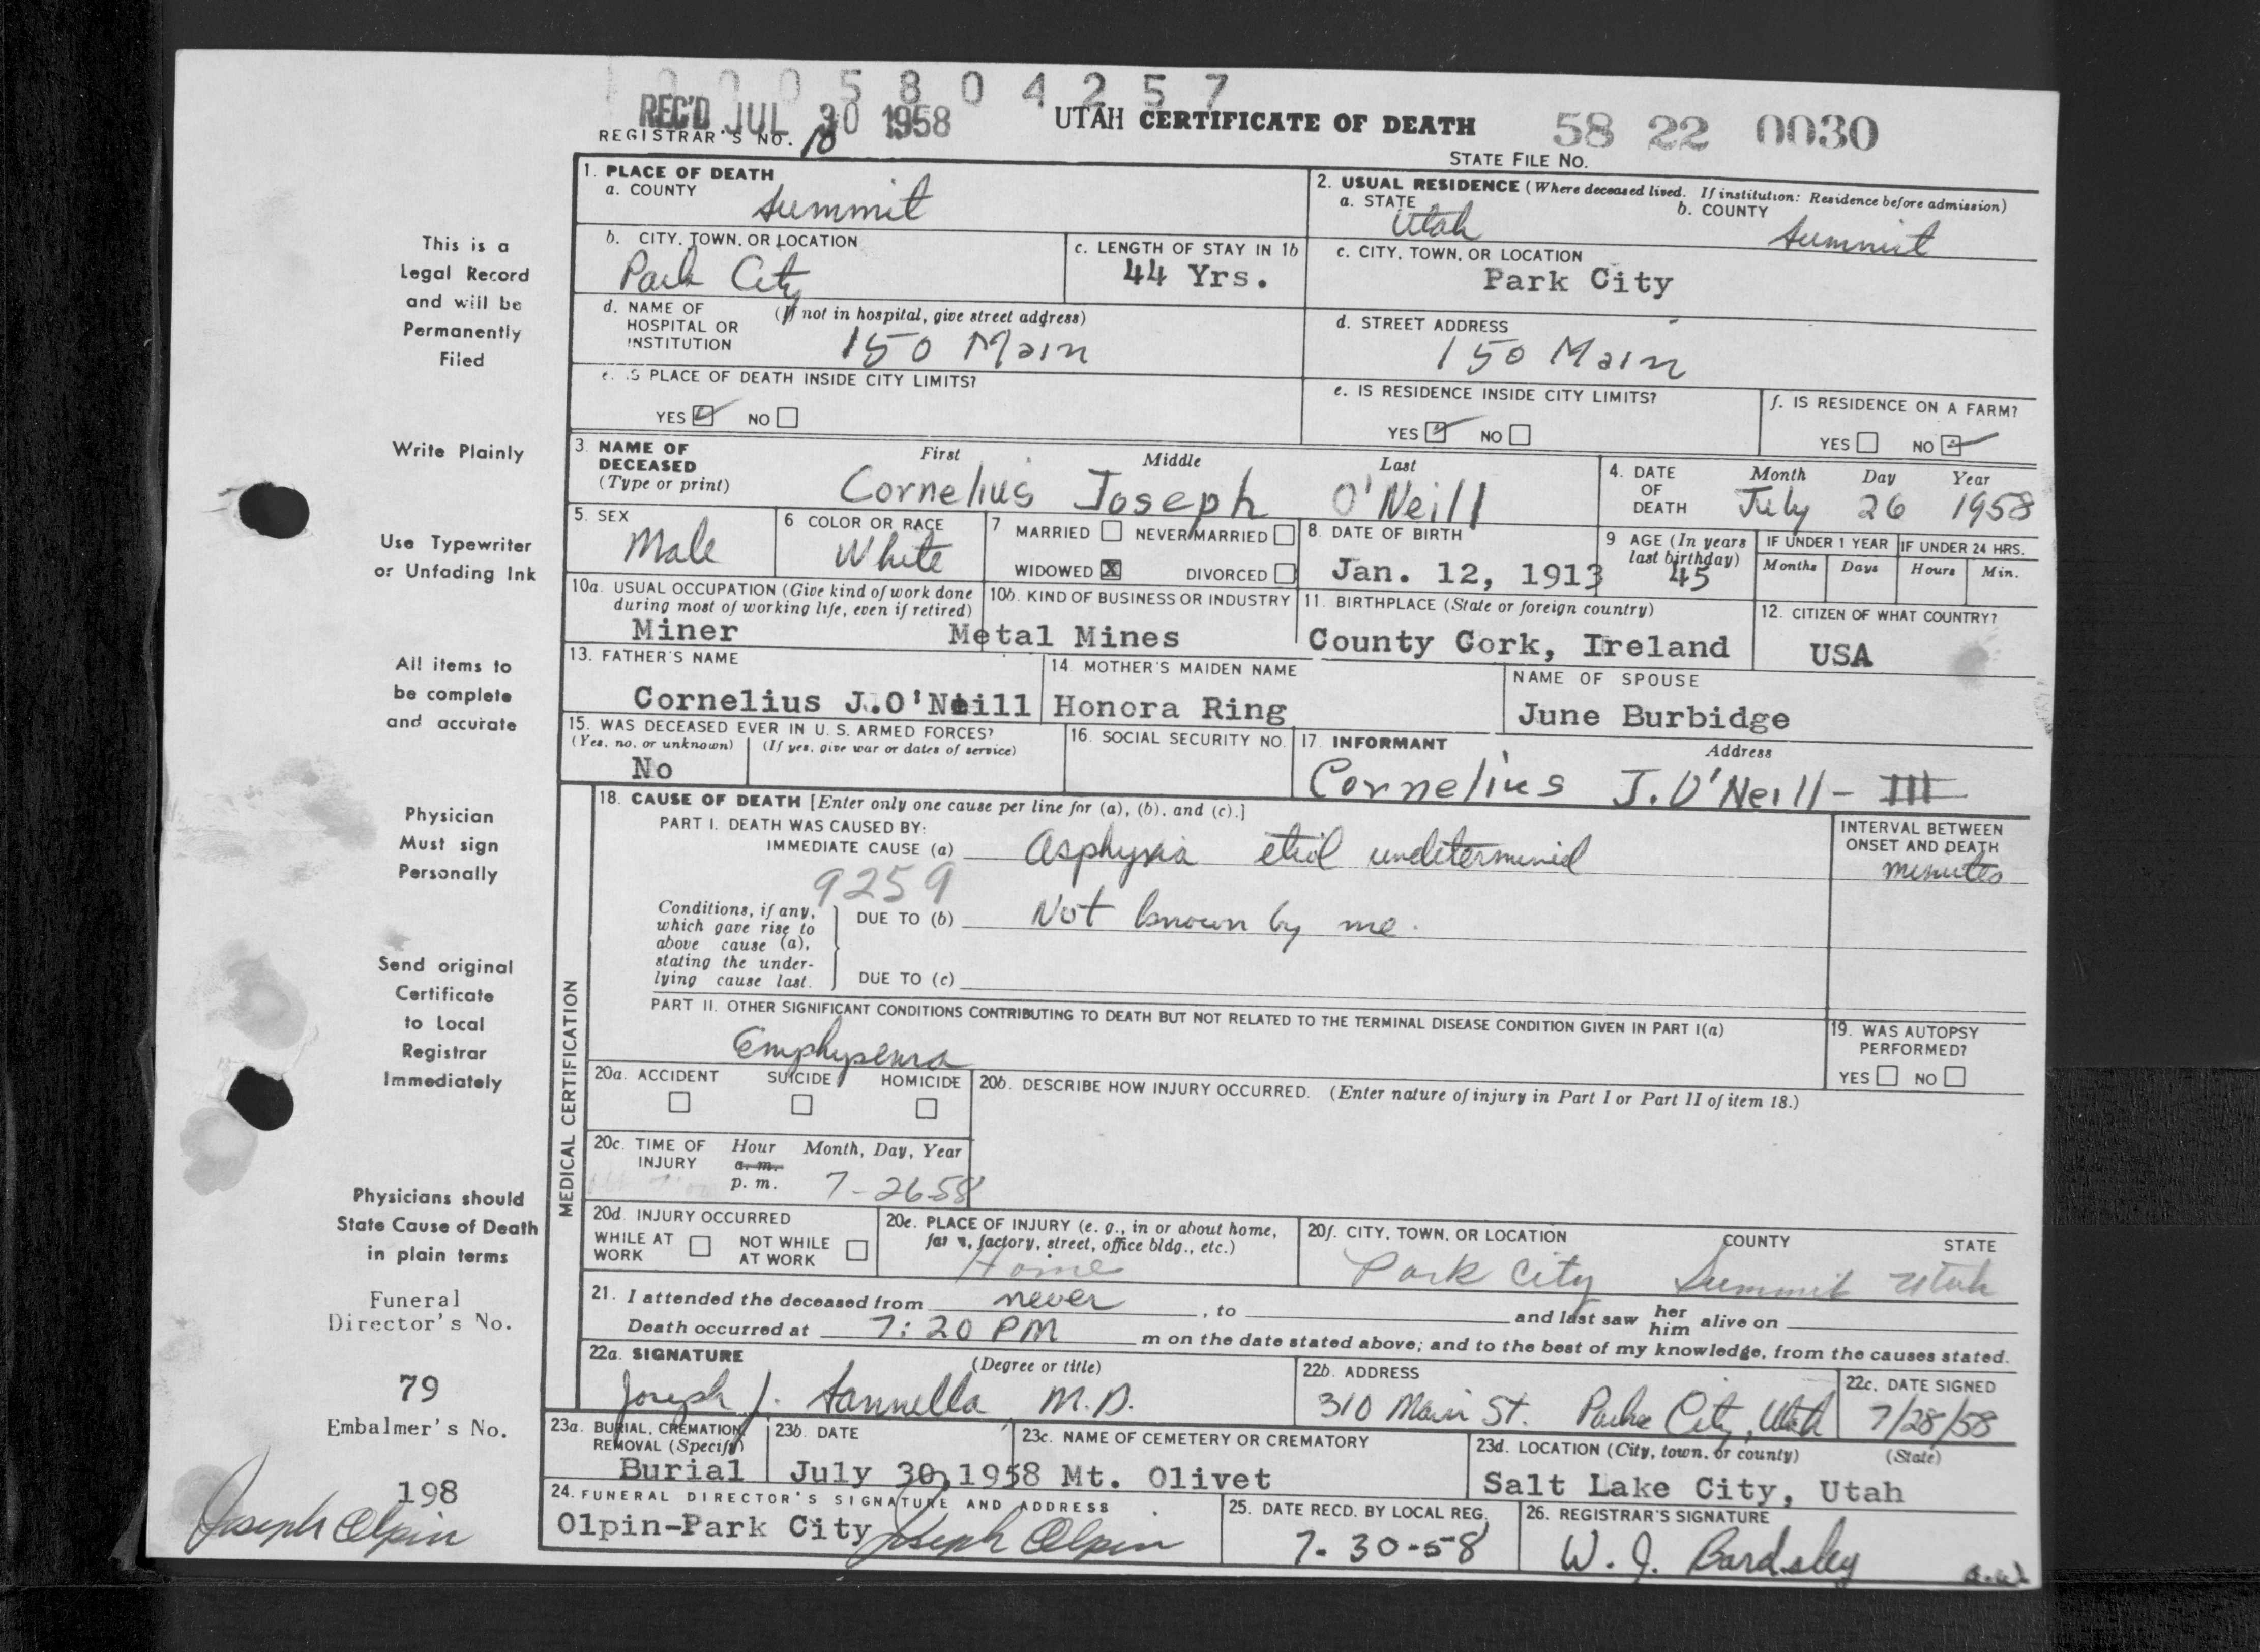 1000 5 8 0 4 2 5 7
REC'D JUL 30 1958
UTAH CERTIFICATE OF DEATH
58 22 0030
REGISTRAR'S NO. 10
STATE FILE NO.
1. PLACE OF DEATH
a. COUNTY Summit
2. USUAL RESIDENCE (Where deceased lived. If institution: Residence before admission)
a. STATE Utah b. COUNTY Summit
b. CITY, TOWN, OR LOCATION Park City
c. LENGTH OF STAY IN 1b 44 Yrs.
c. CITY, TOWN, OR LOCATION Park City
d. NAME OF HOSPITAL OR INSTITUTION (If not in hospital, give street address) 150 Main
d. STREET ADDRESS 150 Main
e. IS PLACE OF DEATH INSIDE CITY LIMITS?
YES NO
e. IS RESIDENCE INSIDE CITY LIMITS?
YES NO
f. IS RESIDENCE ON A FARM?
YES NO
3. NAME OF DECEASED (Type or print)
First Middle Last
Cornelius Joseph O'Neill
4. DATE OF DEATH Month Day Year
July 26 1958
5. SEX Male
6 COLOR OR RACE White
7 MARRIED NEVER MARRIED
WIDOWED X DIVORCED
8. DATE OF BIRTH Jan. 12, 1913
9 AGE (In years last birthday) 45
IF UNDER 1 YEAR Months Days
IF UNDER 24 HRS. Hours Min.
10a. USUAL OCCUPATION (Give kind of work done during most of working life, even if retired)
Miner
10b. KIND OF BUSINESS OR INDUSTRY
Metal Mines
11. BIRTHPLACE (State or foreign country)
County Cork, Ireland
12. CITIZEN OF WHAT COUNTRY?
USA
13. FATHER'S NAME
Cornelius J.O'Neill
14. MOTHER'S MAIDEN NAME
Honora Ring
NAME OF SPOUSE
June Burbidge
15. WAS DECEASED EVER IN U. S. ARMED FORCES?
(Yes, no, or unknown) (If yes, give war or dates of service)
No
16. SOCIAL SECURITY NO.
17. INFORMANT Address
Cornelius J. O'Neill - III
MEDICAL CERTIFICATION
18. CAUSE OF DEATH [Enter only one cause per line for (a), (b), and (c).]
PART I. DEATH WAS CAUSED BY:
IMMEDIATE CAUSE (a) Asphyxia etiol undetermined
INTERVAL BETWEEN ONSET AND DEATH
minutes
9259
Conditions, if any, which gave rise to above cause (a), stating the underlying cause last.
DUE TO (b) Not known by me.
DUE TO (c)
PART II. OTHER SIGNIFICANT CONDITIONS CONTRIBUTING TO DEATH BUT NOT RELATED TO THE TERMINAL DISEASE CONDITION GIVEN IN PART I(a)
Emphysema
19. WAS AUTOPSY PERFORMED?
YES NO
20a. ACCIDENT SUICIDE HOMICIDE
20b. DESCRIBE HOW INJURY OCCURRED. (Enter nature of injury in Part I or Part II of item 18.)
20c. TIME OF INJURY Hour Month, Day, Year
a. m.
p. m. 7-26-58
20d. INJURY OCCURRED
WHILE AT WORK NOT WHILE AT WORK
20e. PLACE OF INJURY (e. g., in or about home, farm, factory, street, office bldg., etc.)
Home
20f. CITY, TOWN, OR LOCATION COUNTY STATE
Park City Summit Utah
21. I attended the deceased from never, to and last saw her him alive on
Death occurred at 7:20 PM m on the date stated above; and to the best of my knowledge, from the causes stated.
22a. SIGNATURE (Degree or title)
Joseph J. Iannella M.D.
22b. ADDRESS
310 Main St. Park City, Utah
22c. DATE SIGNED
7/28/58
23a. BURIAL, CREMATION, REMOVAL (Specify)
Burial
23b. DATE
July 30, 1958
23c. NAME OF CEMETERY OR CREMATORY
Mt. Olivet
23d. LOCATION (City, town, or county) (State)
Salt Lake City, Utah
24. FUNERAL DIRECTOR'S SIGNATURE AND ADDRESS
Olpin-Park City Joseph Olpin
25. DATE RECD. BY LOCAL REG.
7-30-58
26. REGISTRAR'S SIGNATURE
W. J. Bardsley
a.w.
This is a
Legal Record
and will be
Permanently
Filed
Write Plainly
Use Typewriter
or Unfading Ink
All items to
be complete
and accurate
Physician
Must sign
Personally
Send original
Certificate
to Local
Registrar
Immediately
Physicians should
State Cause of Death
in plain terms
Funeral
Director's No.
79
Embalmer's No.
198
Joseph Olpin